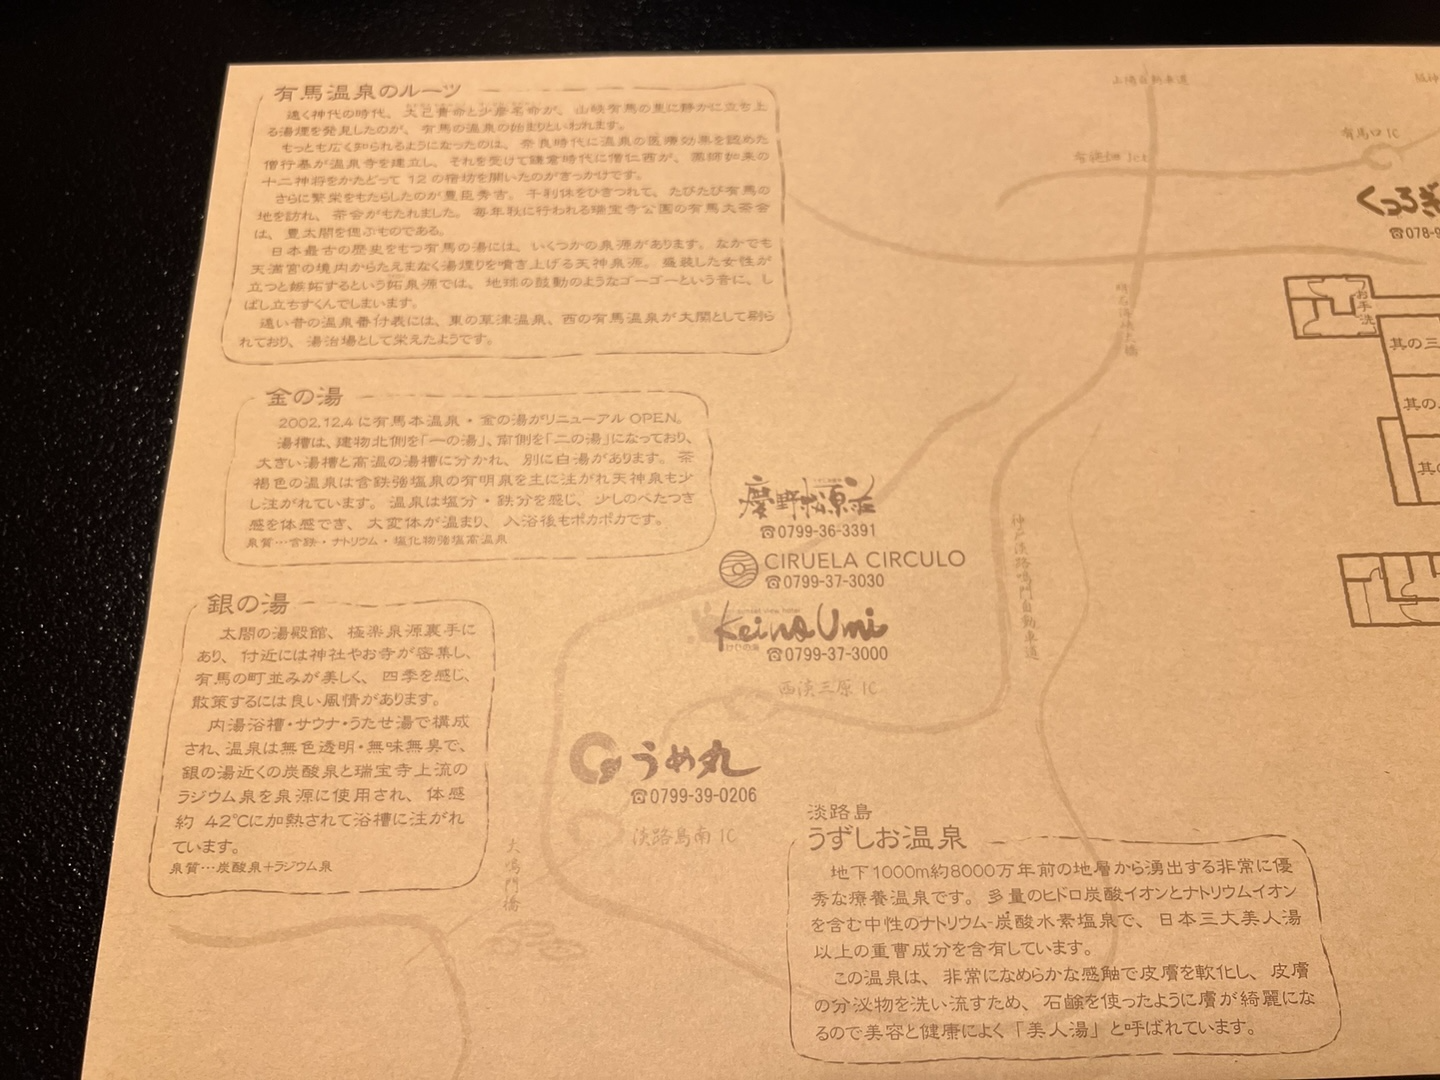 有馬温泉のルーツ
遠く神代の時代、大己貴命と少彦名命が、山峡有馬の里に静かに立ち上
る湯煙を発見したのが、有馬の温泉の始まりといわれます。
もっとも広く知られるようになったのは、奈良時代に温泉の医療効果を認めた
僧行基が温泉寺を建立し、それを受けて鎌倉時代に僧仁西が、薬師如来の
十二神将をかたどって 12 の宿坊を開いたのがきっかけです。
さらに繁栄をもたらしたのが豊臣秀吉。千利休をひきつれて、たびたび有馬の
地を訪れ、茶会がもたれました。毎年秋に行われる瑞宝寺公園の有馬大茶会
は、豊太閤を偲ぶものである。
日本最古の歴史をもつ有馬の湯には、いくつかの泉源があります。なかでも
天満宮の境内からたえまなく湯煙りを噴き上げる天神泉源。盛装した女性が
立つと嫉妬するという妬泉源では、地球の鼓動のようなゴーゴーという音に、し
ばし立ちすくんでしまいます。
遠い昔の温泉番付表には、東の草津温泉、西の有馬温泉が大関として刷ら
れており、湯治場として栄えたようです。
金の湯
2002.12.4 に有馬本温泉・金の湯がリニューアル OPEN。
湯槽は、建物北側を「一の湯」、南側を「二の湯」になっており、
大きい湯槽と高温の湯槽に分かれ、別に白湯があります。茶
褐色の温泉は含鉄強塩泉の有明泉を主に注がれ天神泉も少
し注がれています。温泉は塩分・鉄分を感じ、少しのべたつき
感を体感でき、大変体が温まり、入浴後もポカポカです。
泉質…含鉄・ナトリウム・塩化物強塩高温泉
銀の湯
太閤の湯殿館、極楽泉源裏手に
あり、付近には神社やお寺が密集し、
有馬の町並みが美しく、四季を感じ、
散策するには良い風情があります。
内湯浴槽・サウナ・うたせ湯で構成
され、温泉は無色透明・無味無臭で、
銀の湯近くの炭酸泉と瑞宝寺上流の
ラジウム泉を泉源に使用され、体感
約 42℃に加熱されて浴槽に注がれ
ています。
泉質…炭酸泉+ラジウム泉
有馬口IC
くつろぎ
☎078-9
お手洗
其の三
其の
其の
明石海峡大橋
慶野松原荘
☎0799-36-3391
CIRUELA CIRCULO
☎0799-37-3030
sunset view hotel
Keino Umi
けひの海
☎0799-37-3000
神戸淡路鳴門自動車道
西淡三原IC
うめ丸
☎0799-39-0206
淡路島南IC
大鳴門橋
淡路島
うずしお温泉
地下1000m約8000万年前の地層から湧出する非常に優
秀な療養温泉です。多量のヒドロ炭酸イオンとナトリウムイオン
を含む中性のナトリウム-炭酸水素塩泉で、日本三大美人湯
以上の重曹成分を含有しています。
この温泉は、非常になめらかな感触で皮膚を軟化し、皮膚
の分泌物を洗い流すため、石鹸を使ったように膚が綺麗にな
るので美容と健康によく「美人湯」と呼ばれています。